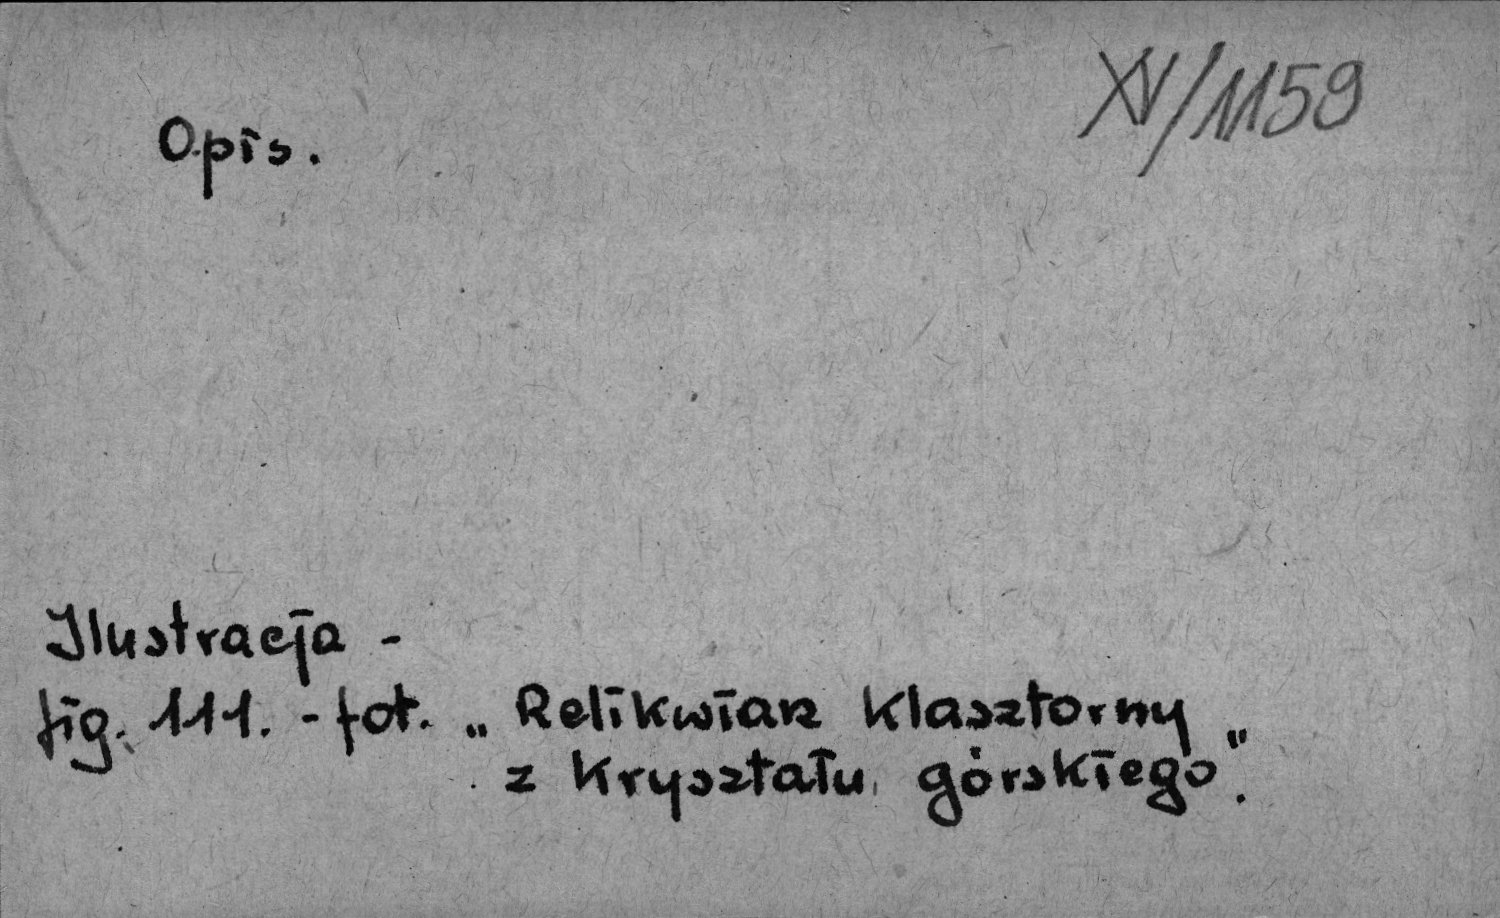 XV/1159
Opis.
Ilustracja -
fig. 111. - fot. „ Relikwiarz klasztorny
z kryształu górskiego".